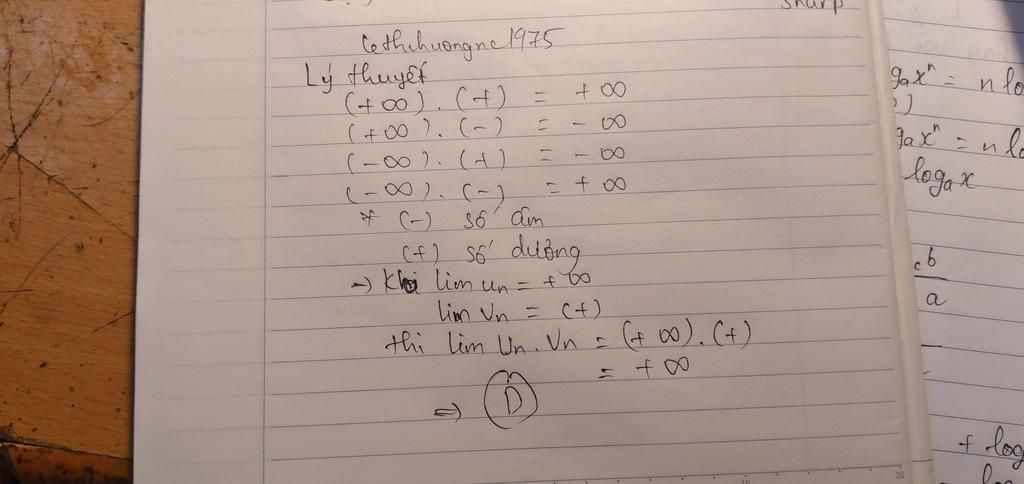 sharp
lethihuongnc1975
Lý thuyết
(+∞). (+) = +∞
(+∞). (-) = -∞
(-∞). (+) = -∞
(-∞). (-) = +∞
* (-) số âm
(+) số dương
→ Khi lim un = +∞
lim vn = (+)
thì lim Un. Vn = (+∞). (+)
= +∞
⇒ D
gax^n = n lo
)
gax^n = n lo
logax
b
a
+ log